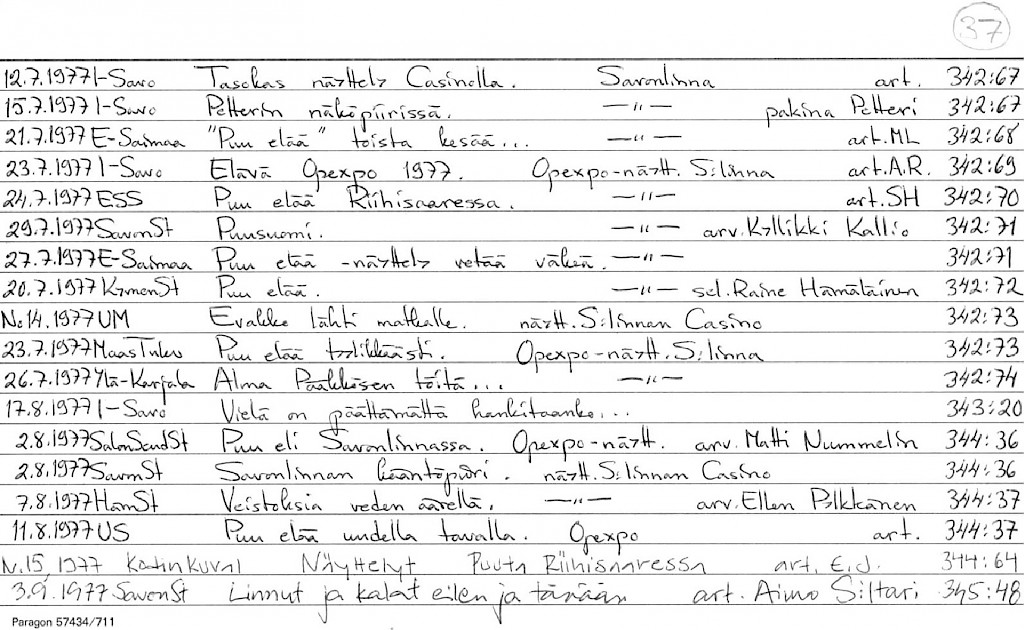 37
12.7.1977 I-Savo Tasokas näyttely Casinolla. Savonlinna art. 342:67
15.7.1977 I-Savo Petterin näköpiirissä. —"— pakina Petteri 342:67
21.7.1977 E-Saimaa "Puu elää" toista kesää... —"— art. ML 342:68
23.7.1977 I-Savo Elävä Opexpo 1977. Opexpo-näytt. S:linna art. A.R. 342:69
24.7.1977 ESS Puu elää Riihisaaressa. —"— art. SH 342:70
29.7.1977 SavonSt Puusuomi. —"— arv. Kyllikki Kallio 342:71
27.7.1977 E-Saimaa Puu elää -näyttely vetää väkeä. —"— 342:71
20.7.1977 KymenSt Puu elää. —"— sel. Raine Hämäläinen 342:72
No 14. 1977 UM Evakko lähti matkalle. näytt. S:linnan Casino 342:73
23.7.1977 MaasTulev Puu elää tylikkäästi. Opexpo-näytt. S:linna 342:73
26.7.1977 Ylä-Karjala Alma Pääkkösen töitä... —"— 342:74
17.8.1977 I-Savo Vielä on päättämättä hankitaanko... 343:20
2.8.1977 SalonSeudSt Puu eli Savonlinnassa. Opexpo-näytt. arv. Matti Nummelin 344:36
2.8.1977 SavonSt Savonlinnan kääntöpiiri. näytt. S:linnan Casino 344:36
7.8.1977 HämSt Veistoksia veden äärellä. —"— arv. Ellen Pylkkänen 344:37
11.8.1977 US Puu elää uudella tavalla. Opexpo art. 344:37
N. 15, 1977 KotinKuval Näyttelyt Puuta Riihisaaressa art. E.J. 344:64
3.9.1977 SavonSt Linnut ja kalat eilen ja tänään art. Aimo Siltari 345:48
Paragon 57434/711